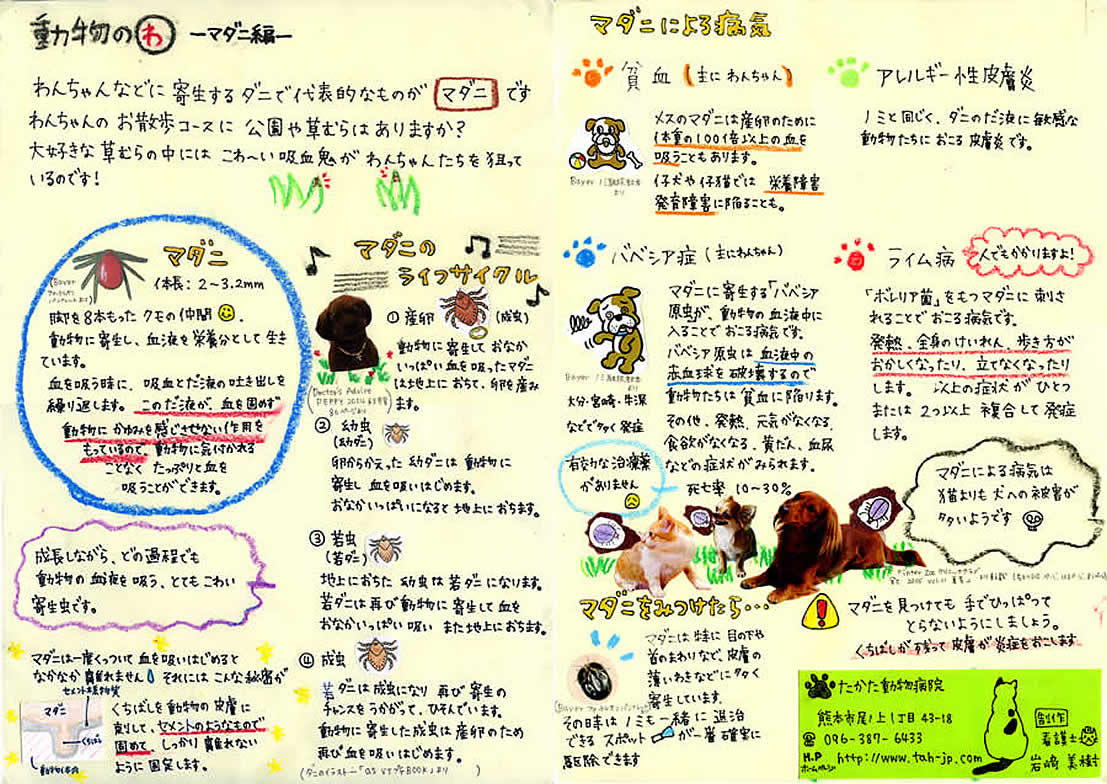 動物のわ ーマダニ編ー
わんちゃんなどに寄生するダニで代表的なものが マダニ です
わんちゃんのお散歩コースに 公園や草むらはありますか?
大好きな草むらの中には こわ〜い吸血鬼が わんちゃんたちを狙って
いるのです!
マダニ
体長: 2〜3.2mm
脚を8本もった クモの仲間
動物に寄生し、血液を栄養分として生き
ています。
血を吸う時に、吸血とだ液の吐き出しを
繰り返します。このだ液が、血を固めず
動物に かゆみを感じさせない作用を
もっているので、動物に気付かれる
ことなく たっぷりと血を
吸うことができます。
成長しながら、どの過程でも
動物の血液を吸う、とても こわい
寄生虫です。
マダニは一度くっついて 血を吸いはじめると
なかなか離れません それには こんな秘密が
セメント様物質
マダニ
くちばし
動物の体内
くちばしを 動物の皮膚に
刺して、セメントのようなもので
固めて、しっかり離れない
ように固集します。
マダニの
ライフサイクル
① 産卵 (成虫)
動物に寄生して おなか
いっぱい血を吸ったマダニ
は地上に おちて、卵を産み
ます。
Doctor's Advice
② 幼虫
(幼ダニ)
卵からかえった 幼ダニは 動物に
寄生し 血を吸いはじめます。
おなかいっぱいになると 地上におちます。
③ 若虫
(若ダニ)
地上におちた 幼虫は 若ダニになります。
若ダニは再び動物に寄生して 血を
おなかいっぱい吸い また地上におちます。
④ 成虫
若ダニは成虫になり 再び寄生の
チャンスを うかがって、ひそんでいます。
動物に寄生した成虫は産卵のため
再び血を吸いはじめます。
マダニによる病気
貧血 (主に わんちゃん)
メスのマダニは産卵のために
体重の100倍以上の血を
吸うこともあります。
仔犬や仔猫では 栄養障害
発育障害に陥ることも。
アレルギー性皮膚炎
ノミと同じく、ダニのだ液に敏感な
動物たちに おこる 皮膚炎です。
バベシア症 (主にわんちゃん)
マダニに寄生する「バベシア
原虫が、動物の血液中に
入ることで おこる病気です。
バベシア原虫は 血液中の
赤血球を破壊するので
動物たちは 貧血に陥ります。
その他、発熱、元気がなくなる、
食欲がなくなる、黄だん、血尿
などの症状が みられます。
死亡率 10〜30%
大分・宮崎・
などで多く発症
有効な治療薬
がありません
ライム病
人でもかかりますよ!
「ボレリア菌」をもつマダニに 刺さ
れることで おこる病気です。
発熱、全身のけいれん、歩き方が
おかしくなったり、立てなくなったり
します。 以上の症状が ひとつ
または 2つ以上 複合して 発症
します。
マダニによる病気は
猫よりも 犬への被害が
多いようです
マダニをみつけたら・・・
マダニは 特に 目の下や
首のまわりなど、皮膚の
薄いわきなどに多く
寄生しています。
その時は ノミも一緒に退治
できる スポット が一番 確実に
駆除できます
マダニを見つけても 手でひっぱって
とらないようにしましょう。
くちばしが残って 皮膚が炎症をおこします
たかた動物病院
熊本市尾ノ上1丁目 43-18
096-387-6433
H.P
ホームページ
http://www.tah-jp.com
制作
看護士
岩崎 美樹